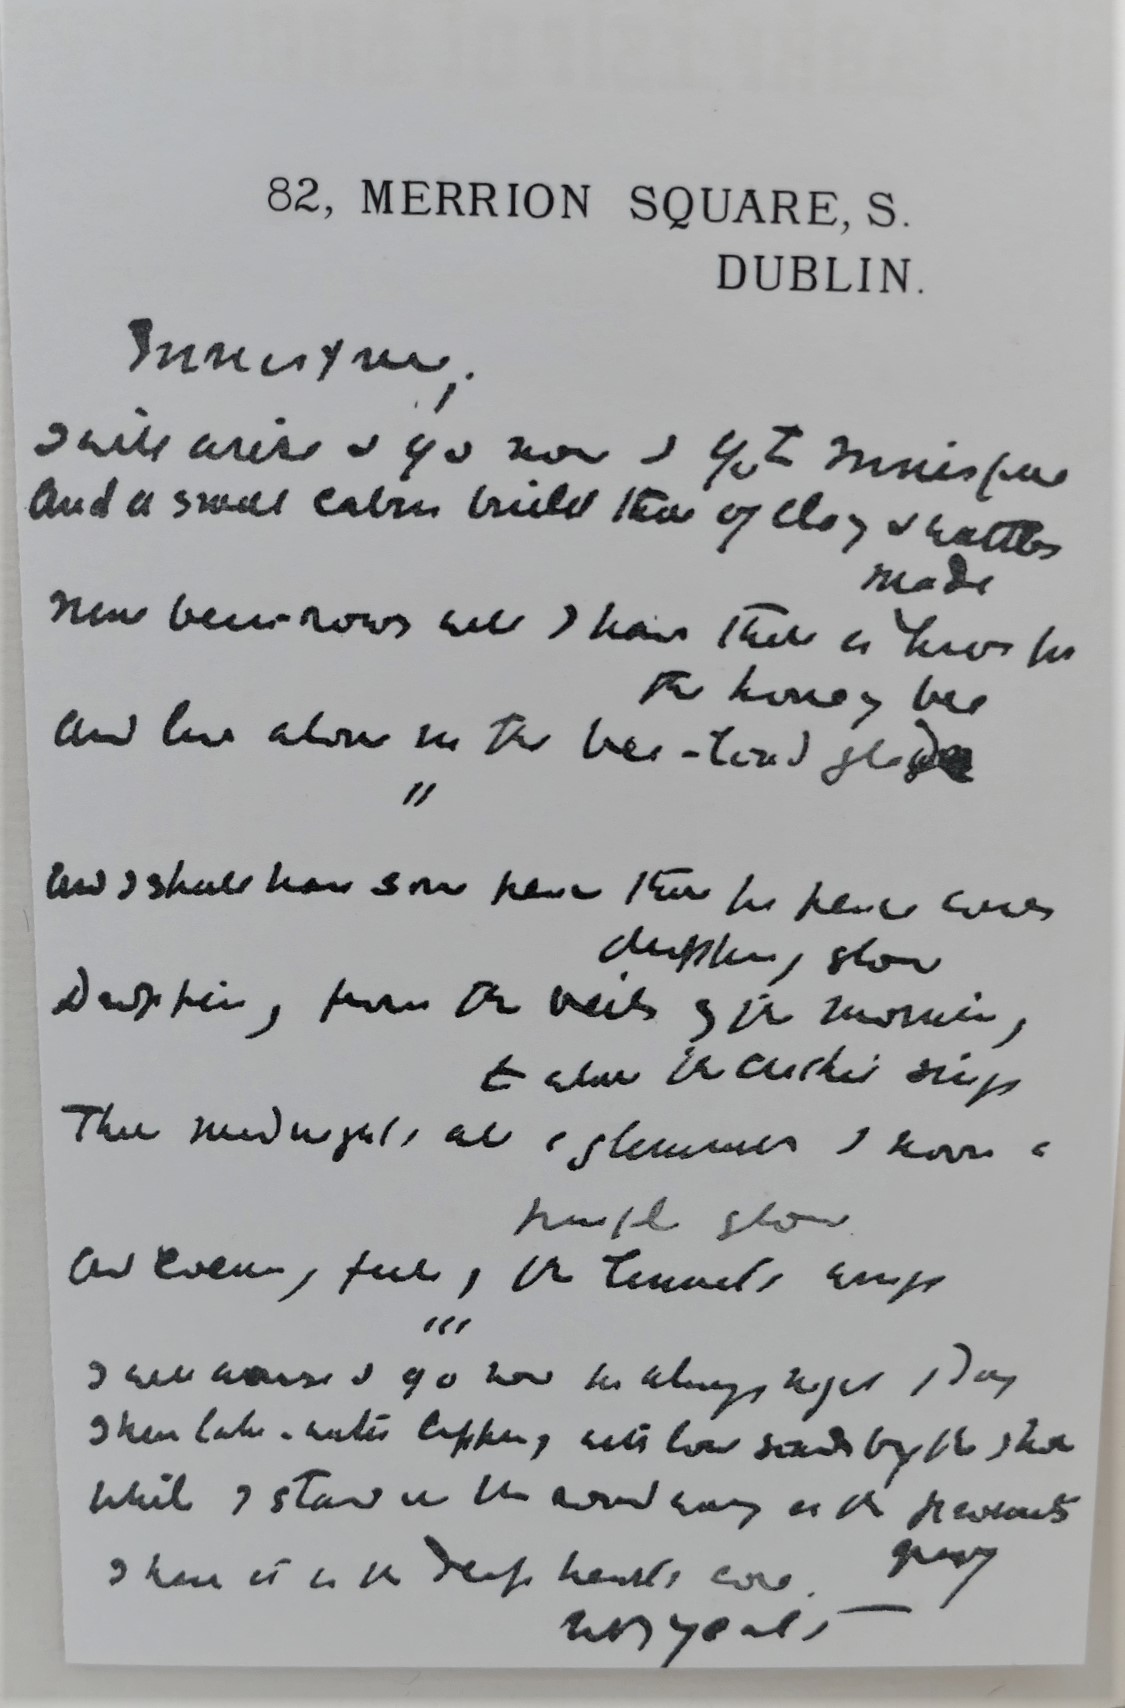 82, MERRION SQUARE, S.
DUBLIN.
Innisfree,
I will arise & go now & go to Innisfree
And a small cabin build there of clay & wattles
made
Nine bean-rows will I have there a hive for
the honey bee
And live alone in the bee-loud glade
"
And I shall have some peace there for peace comes
dropping slow
Dropping from the veils of the morning
to where the cricket sings
There midnight's all a glimmer & noon a
purple glow
And evening full of the linnet's wings
'''
I will arise & go now for always night & day
I hear lake-water lapping with low sounds by the shore
While I stand on the roadway or on the pavements
grey
I hear it in the deep heart's core.
WB Yeats